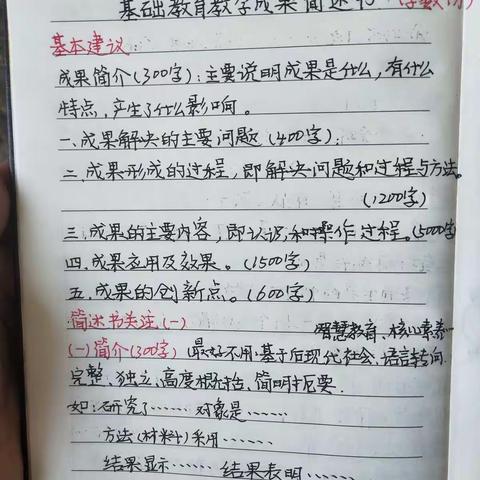 基础教育教学成果简述书(字数
基本建议
成果简介(300字):主要说明成果是什么,有什么
特点,产生了什么影响。
一、成果解决的主要问题(400字):
二、成果形成的过程,即解决问题和过程与方法。
(1200字)
三、成果的主要内容,即认识和操作过程。(5000字
四、成果应用及效果。(1500字)
五、成果的创新点。(600字)
简述书关注(一)
智慧教育、核心素养…
(一)简介(300字)(最好不用:基于后现代社会,语言转向.
完整、独立、高度概括、简明扼要.
如:研究了…… 对象是……
方法(材料)采用……
结果显示…… 结果表明……